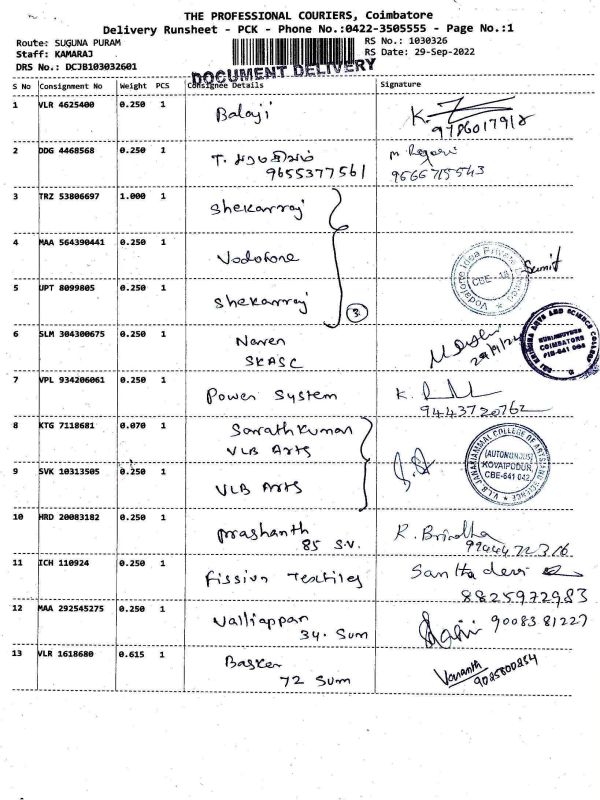 THE PROFESSIONAL COURIERS, Coimbatore
Delivery Runsheet - PCK - Phone No.:0422-3505555 - Page No.:1
Route: SUGUNA PURAM RS No.: 1030326
Staff: KAMARAJ RS Date: 29-Sep-2022
DRS No.: DCJB103032601
DOCUMENT DELIVERY
S No Consignment No Weight PCS Consignee Details Signature
1 VLR 4625400 0.250 1 Balaji K.
9786017918
2 DDG 4468568 0.250 1 T.
9655377561 9566715543
3 TRZ 53806697 1.000 1 Shekarraj
4 MAA 564390441 0.250 1 Vodofone
Vodafone Idea Private Limited
CBE - 18
Sumit
5 UPT 8099805 0.250 1 Shekarraj
3
6 SLM 304300675 0.250 1 Naren
SKASC
SRI KRISHNA ARTS AND SCIENCE COLLEGE
KUNIAMUTHUR
COIMBATORE
PIN-641 008
7 VPL 934206061 0.250 1 Power System K.
9443720762
8 KTG 7118681 0.070 1 Sarathkumar
VLB Arts
9 SVK 10313505 0.250 1 VLB Arts
V.L.B. JANAKIAMMAL COLLEGE OF ARTS AND SCIENCE
(AUTONOMOUS)
KOVAIPUDUR,
CBE-641 042
10 HRD 20083182 0.250 1 Prashanth R. Brindha
85 S.V. 9944472316
11 ICH 110924 0.250 1 Fission Textiles Santha devi
8825972983
12 MAA 292545275 0.250 1 Valliappan
34. Sum 9008381227
13 VLR 1618680 0.615 1 Basker Vasanth
72 Sum 9025800254